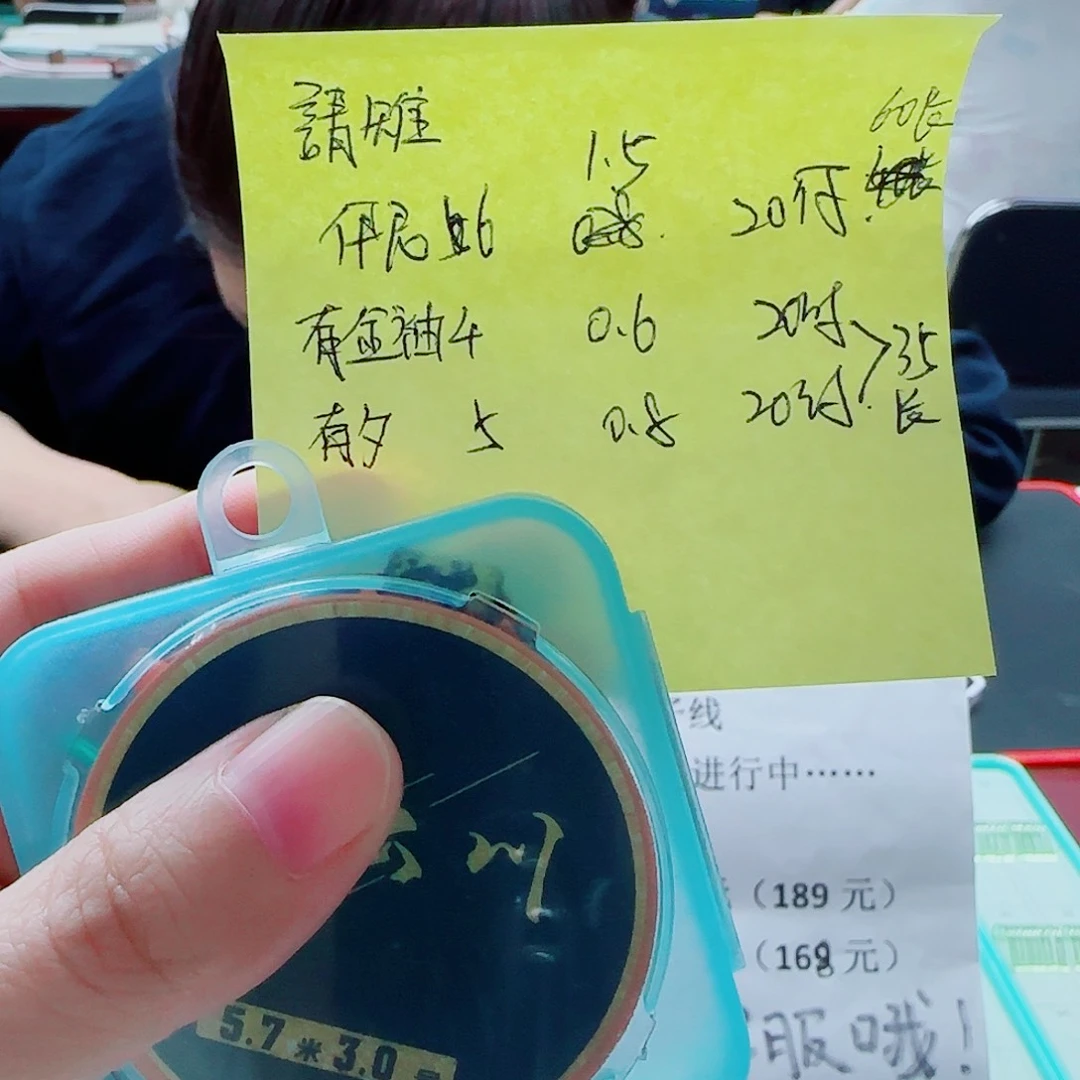 60长
1.5
伊尼 6 20付.
有金袖 4 0.6 20付
有夕 5 0.8 20付.
35
长
子线
进行中……
川
（189 元）
（169 元）
5.7*3.0
服哦！